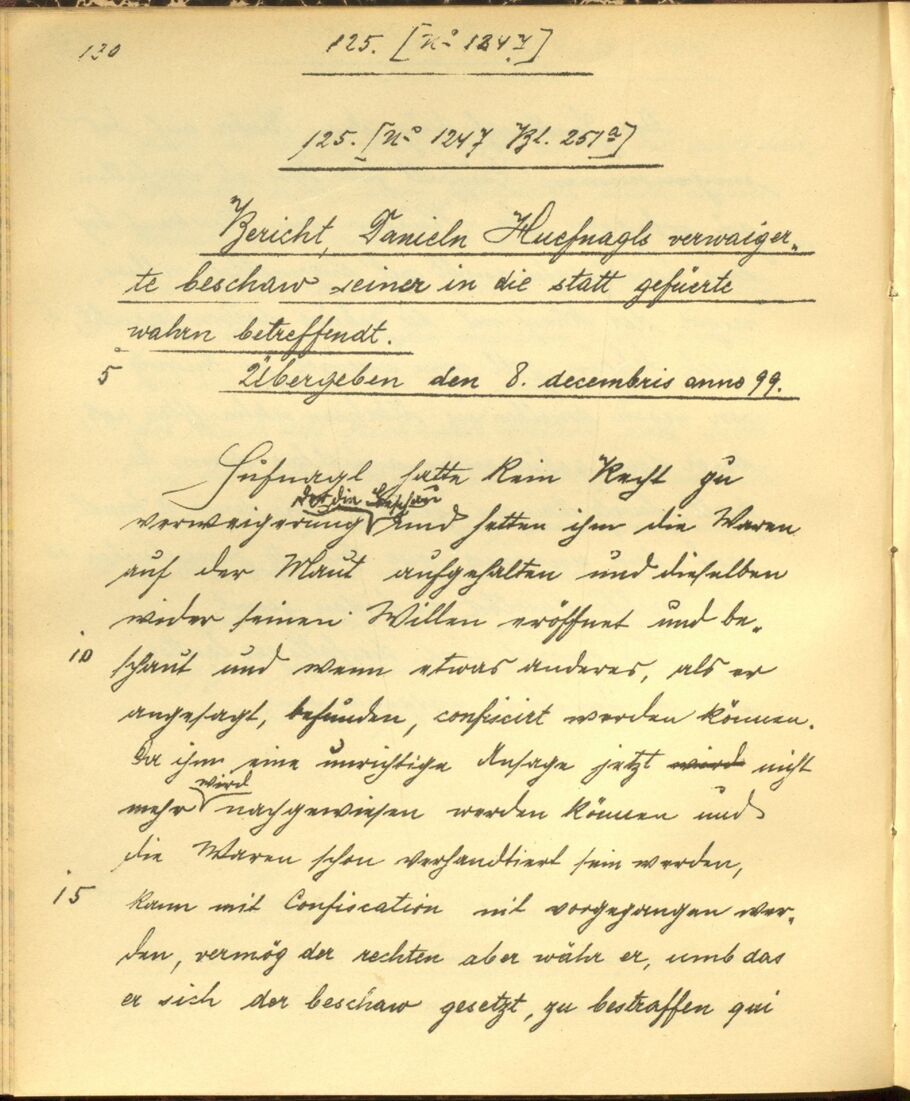 130
125. [No 1247]
125. [No 1247 Bl. 251a]
Bericht, Danieln Huefnagls verwaiger-
te beschaw seiner in die statt gefüerte
wahrn betreffendt.
5 Übergeben den 8. decembris anno 99.
Hüfnagl hatte kein Recht zu
der die Beschau
verweigerung und hetten ihm die Waren
auf der Maut aufgehalten und dieselben
wider seinen Willen eröffnet und be-
10 schaut und wenn etwas anderes, als er
angesagt, befunden, confiscirt werden können.
Da ihm eine unrichtige Ansage jetzt wird nicht
wird
mehr nachgewiesen werden können und
die Waren schon verhandtiert sein werden,
15 kann mit Confiscation nit vorgegangen wer-
den, vermög der rechten aber währ er, umb das
er sich der beschaw gesetzt, zu bestraffen qui